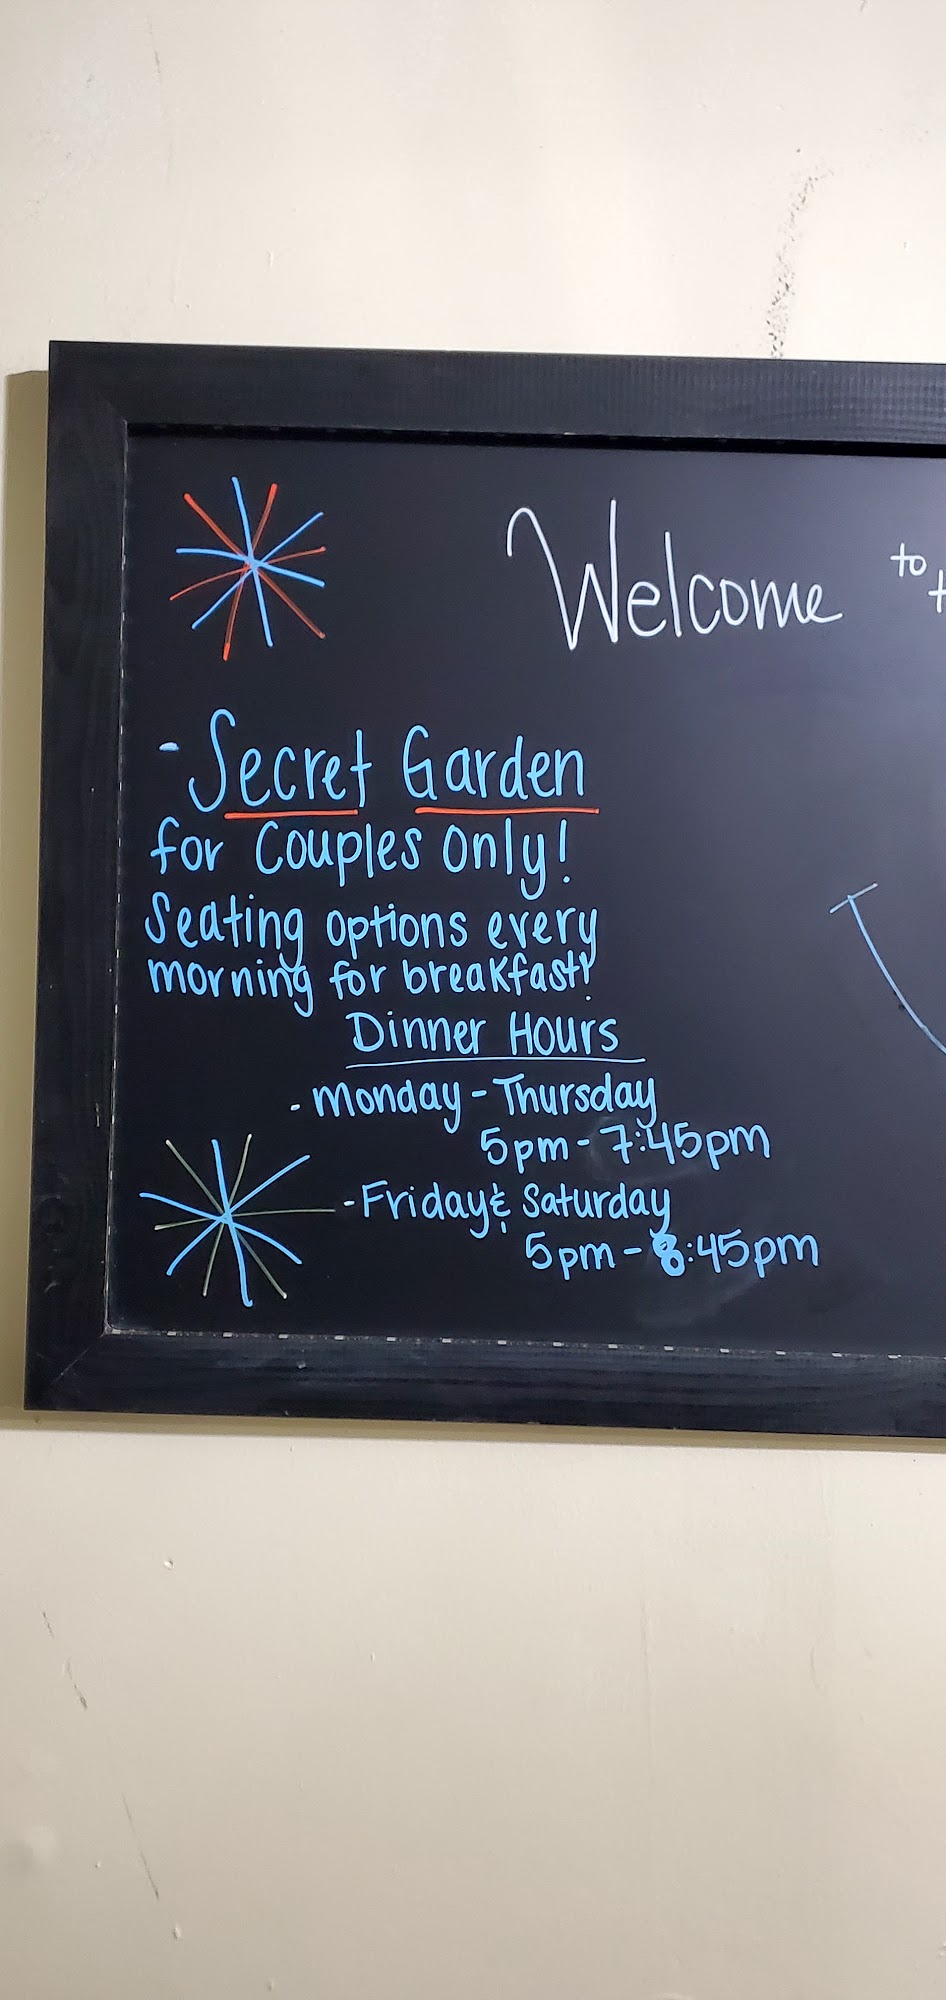 Welcome to
- Secret Garden
for Couples only!
Seating options every
morning for breakfast!
Dinner Hours
- Monday - Thursday
5pm - 7:45pm
- Friday & Saturday
5pm - 8:45pm